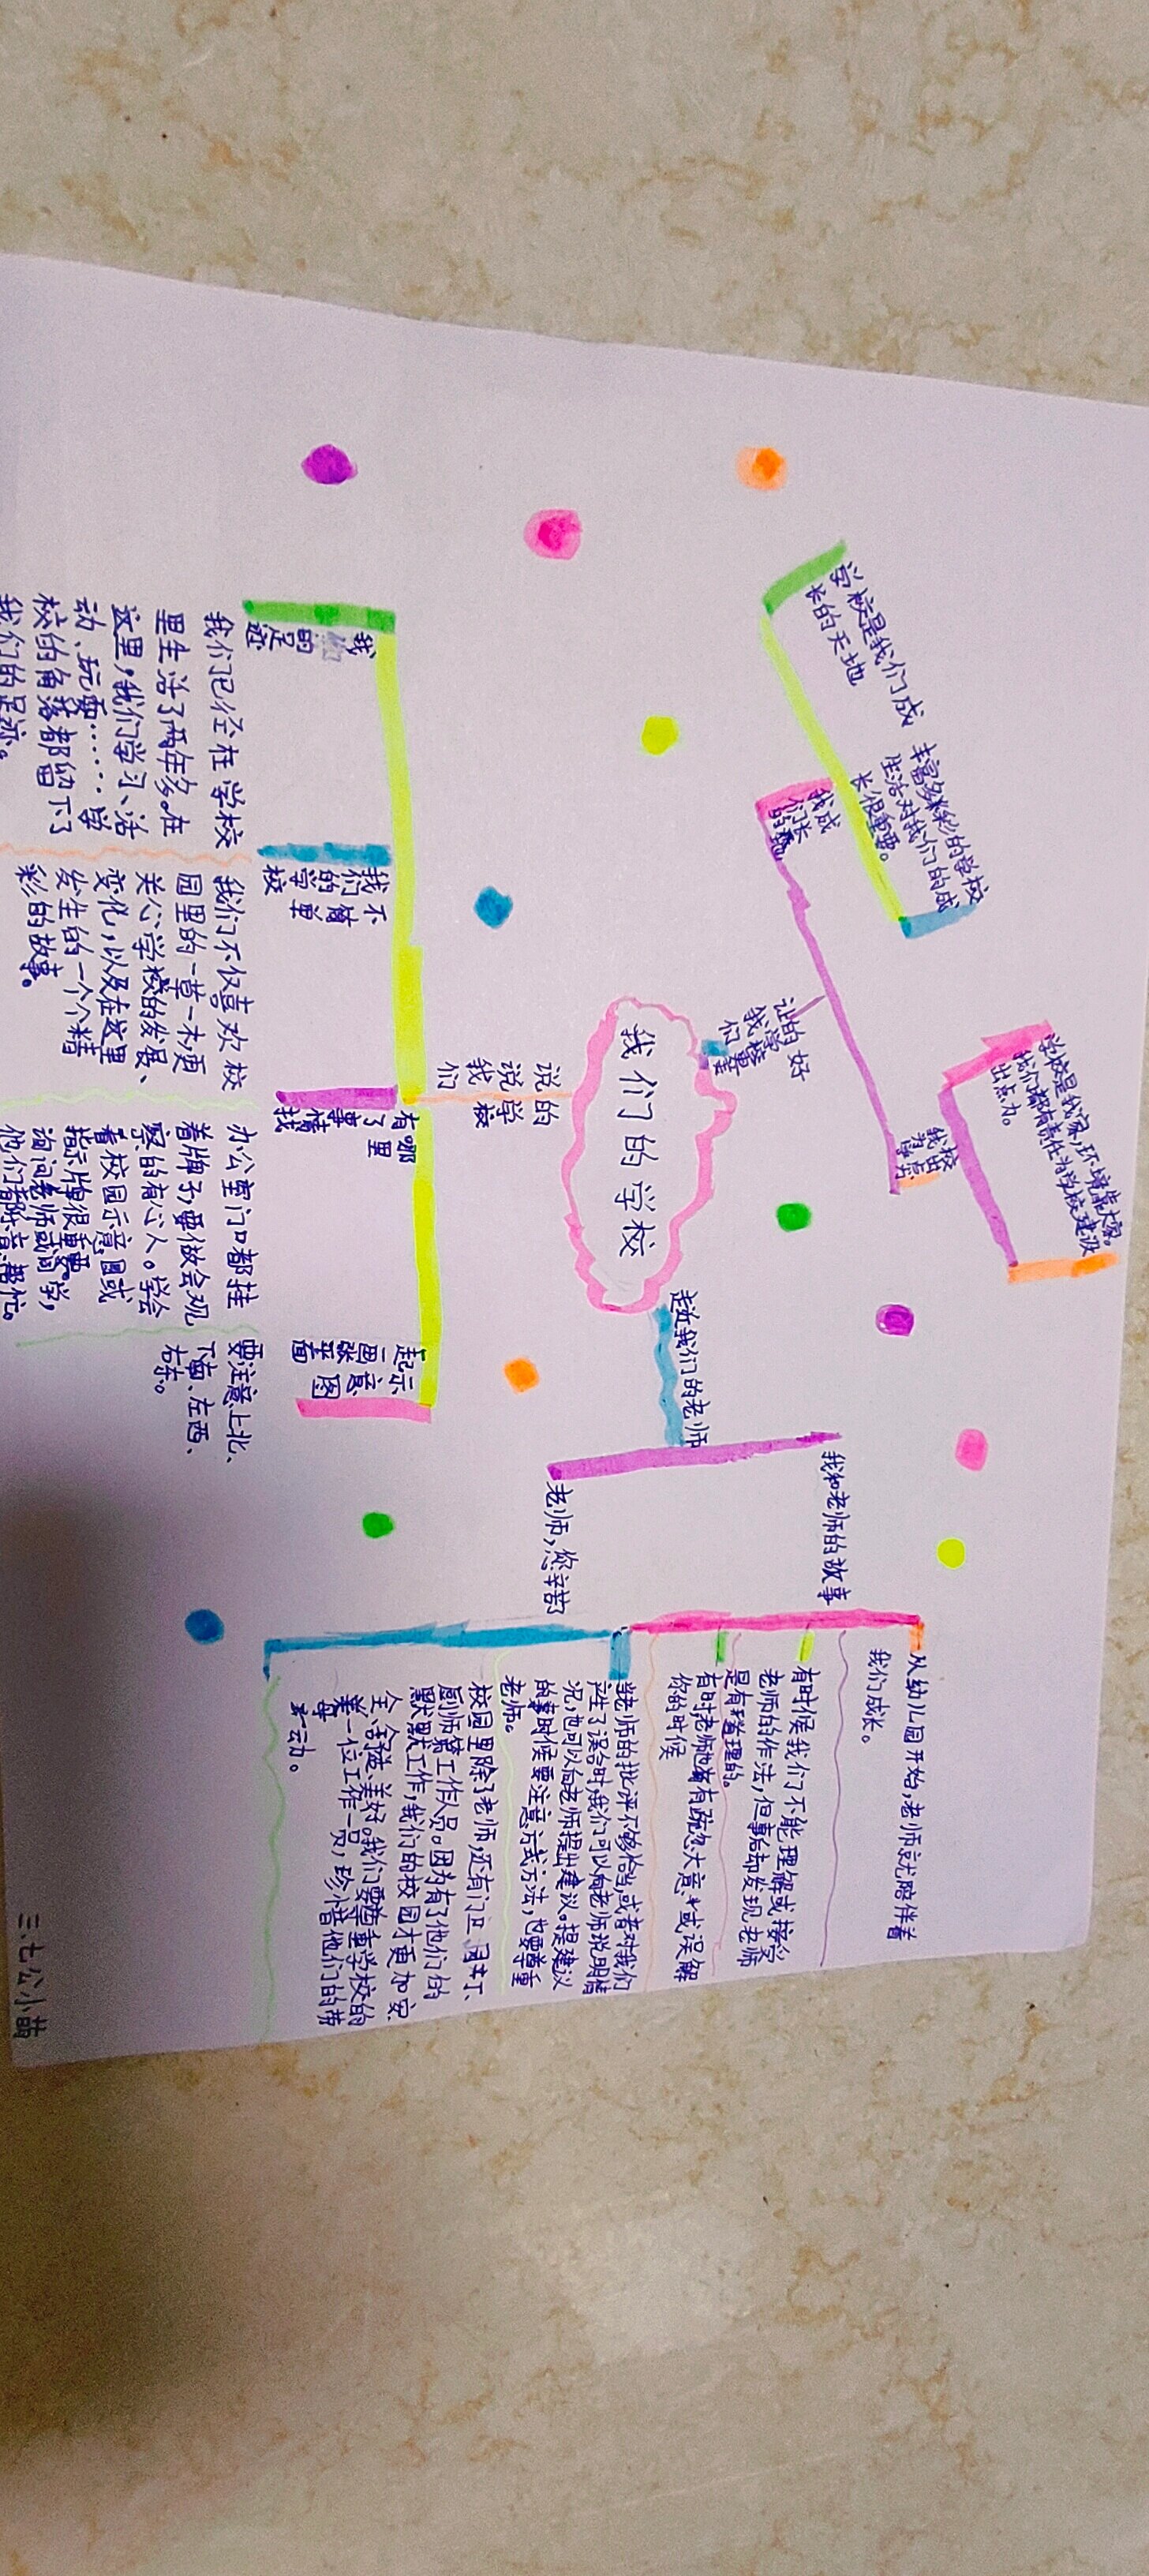 我们的学校
说说我们
的学校
我们的足迹
我们已经在学校
里生活了两年多。在
这里，我们学习、活
动、玩耍……学
校的角落都留下了
我们的足迹。
我们的学校
不简单
我们不仅喜欢校
园里的一草一木，更
关心学校的发展、
变化，以及在这里
发生的一个个精
彩的故事。
有了事情找
哪里
办公室门口都挂
着牌子，要做会观
察的有心人。学会
看校园示意图或
指示牌很重要。
询问老师或同学，
他们都
起画张平面
示意图
要注意上北、
下南、左西、
右东。
走近我们的老师
我和老师的故事
从幼儿园开始，老师就陪伴着
我们成长。
有时候我们不能理解或接受
老师的作法，但事后却发现老师
是有道理的。
有时老师也有疏忽大意或误解
你的时候
老师，您辛苦了
当老师的批评不够恰当，或者对我们
产生了误会时，我们可以向老师说明情
况，也可以向老师提出建议。提建议
的时候要注意方式方法，也要尊重
老师。
校园里除了老师，还有门卫、园丁、
厨师等工作人员。因为有了他们的
默默工作，我们的校园才更加安
全、舒适、美好。我们要尊重学校的
每一位工作人员，珍惜他们的劳
动。
让我们
的学校
更好
我们
成长的
学校是我们成
长的天地
丰富多彩的学校
生活对我们的成
长很重要。
我为学
校出点力
学校是我家，环境靠大家。
我们都有责任为学校建设
出点力。
三、七 公小萌